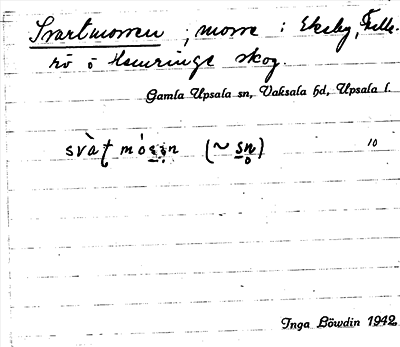 Svartmossen, mosse i Eksby, Fulle-
rö o Henringe skog.
Gamla Upsala sn, Vaksala hd, Upsala l.
svàʈ mó̱sɩn (~ s̱n̥) 10
Inga Löwdin 1942